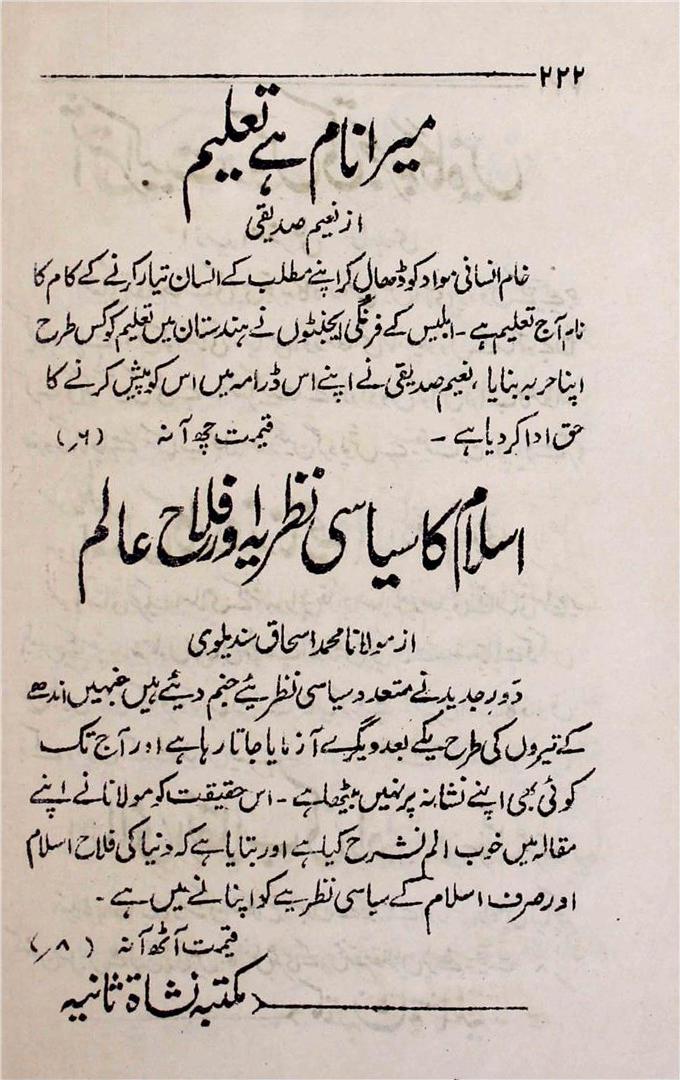 ۲۲۲
میرا نام ہے تعلیم
از نعیم صدیقی
خام انسانی مواد کو ڈھال کر اپنے مطلب کے انسان تیار کرنے کے کام کا
نام آج تعلیم ہے ۔ ابلیس کے فرنگی ایجنٹوں نے ہندستان میں تعلیم کو کس طرح
اپنا حربہ بنایا ، نعیم صدیقی نے اپنے اس ڈرامہ میں اس کو پیش کرنے کا
حق ادا کر دیا ہے ۔ قیمت چھ آنہ (۶؍)
اسلام کا سیاسی نظریہ اور فلاح عالم
از مولانا محمد اسحاق سندیلوی
دَورِ جدید نے متعدد سیاسی نظریئے جنم دیئے ہیں جنہیں اندھے
کے تیروں کی طرح یکے بعد دیگرے آزمایا جاتا رہا ہے اور آج تک
کوئی بھی اپنے نشانہ پر نہیں بیٹھا ہے ۔ اس حقیقت کو مولانا نے اپنے
مقالہ میں خوب الم نشرح کیا ہے اور بتایا ہے کہ دنیا کی فلاح اسلام
اور صرف اسلام کے سیاسی نظریے کو اپنانے میں ہے ۔
قیمت آٹھ آنہ (۸؍)
مکتبہ نشاۃ ثانیہ